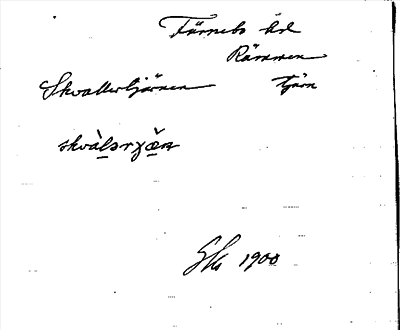 Färnebo hd
Rämmen
Skvallertjärnen tjärn
skvàlərɟæ̌ɳ
Gks 1900